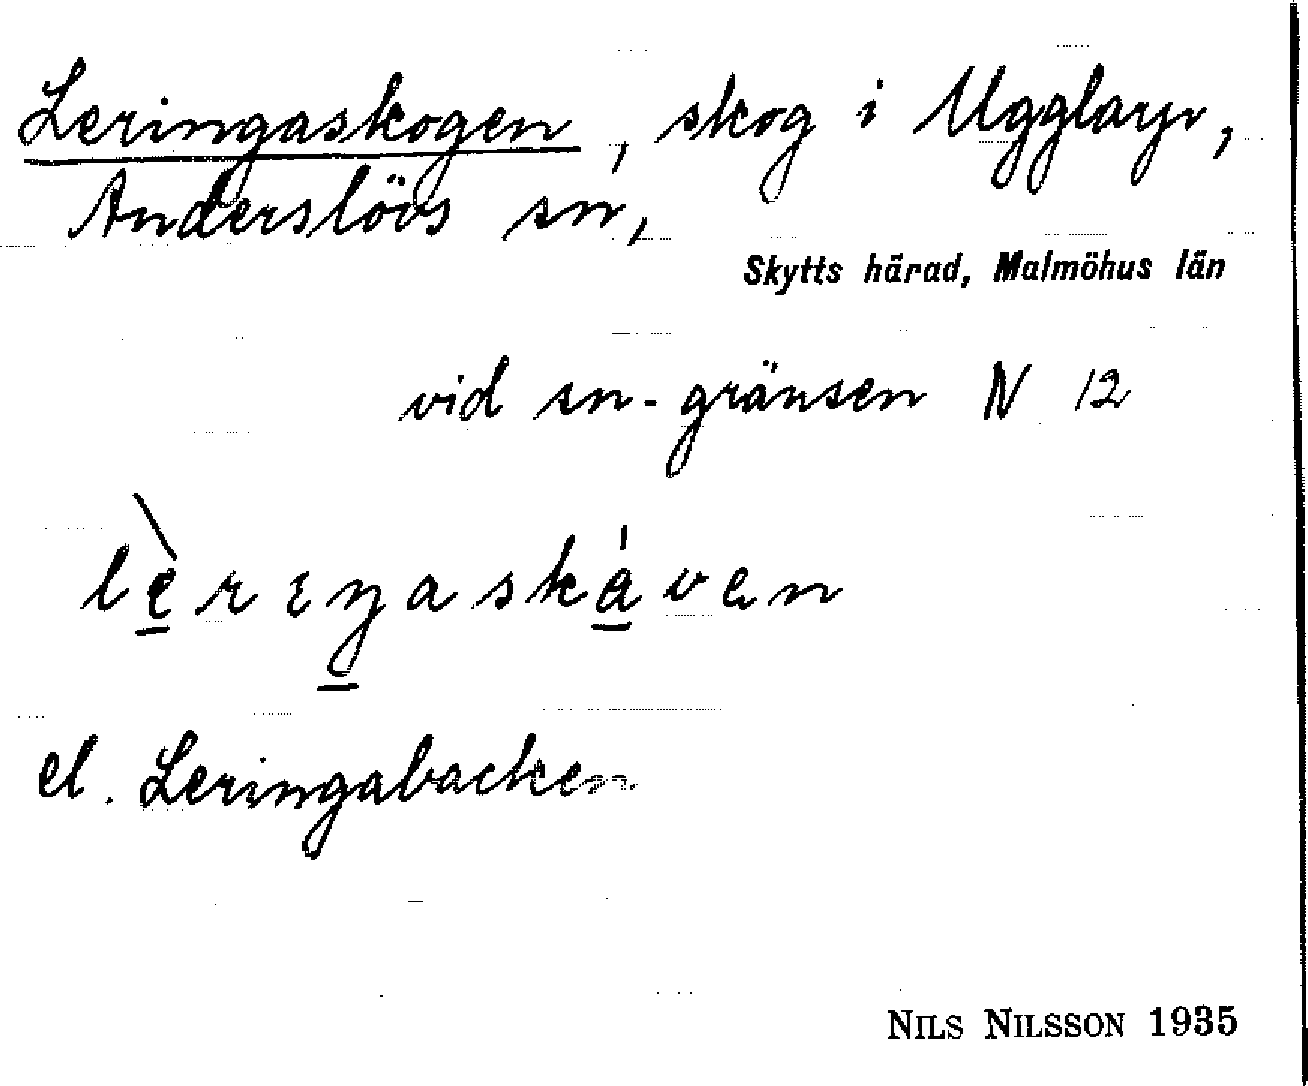 Leringaskogen, skog i Ugglarp,
Anderslövs sn,
Skytts härad, Malmöhus län
vid sn-gränsen N 12
lèrıŋaskáven
el. Leringabacken
NILS NILSSON 1935